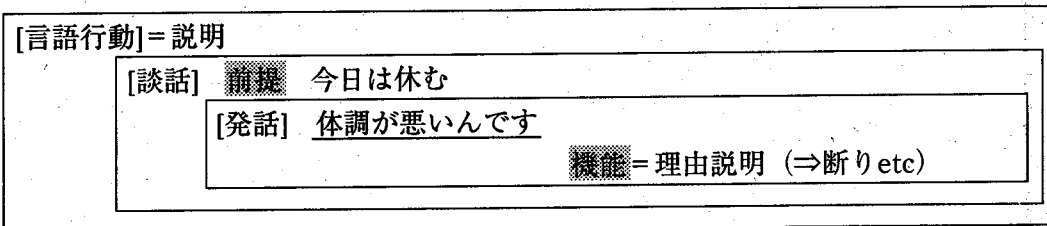 [言語行動]=説明
[談話] 前提 今日は休む
[発話] 体調が悪いんです
機能=理由説明 (⇒断りetc)